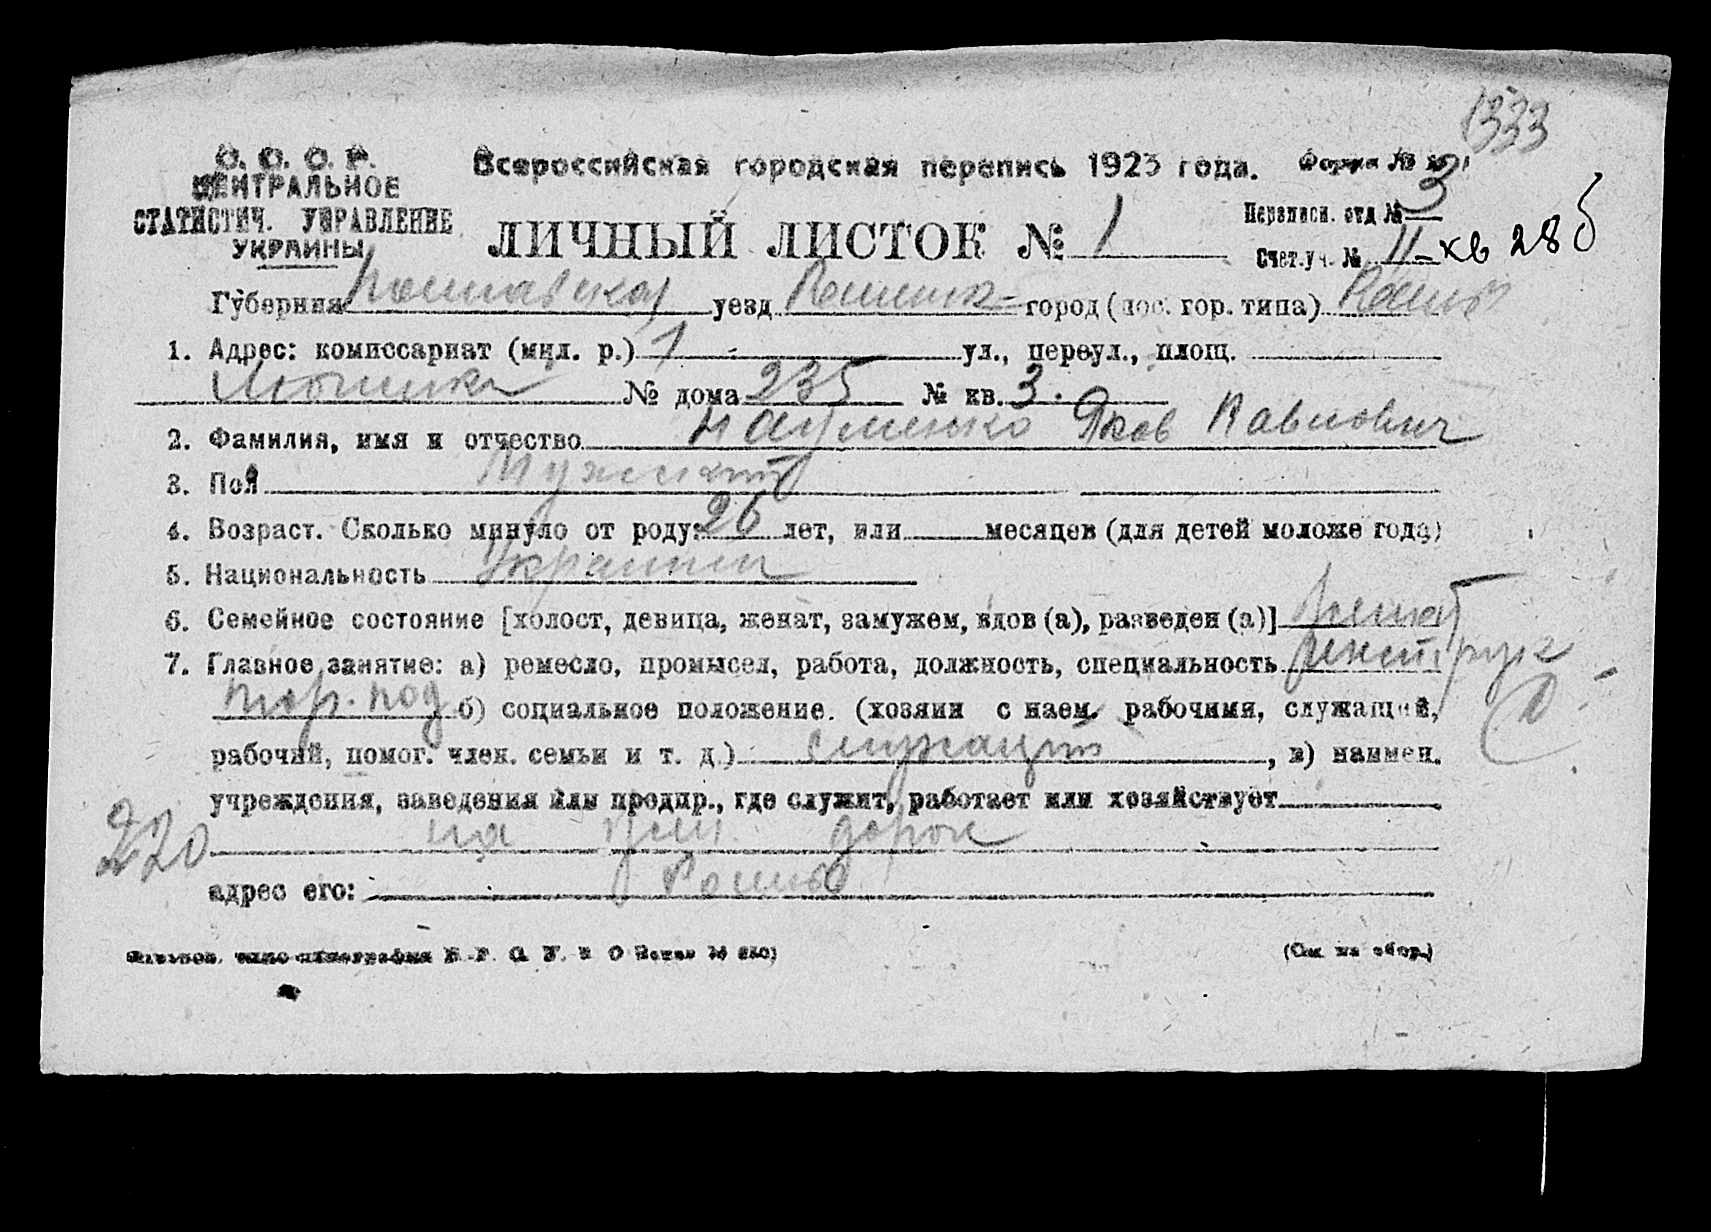 1333
С. С. С. Р.
ЦЕНТРАЛЬНОЕ
СТАТИСТИЧ. УПРАВЛЕНИЕ
УКРАИНЫ
Всероссийская городская перепись 1923 года. Форма №
Переписн. отд № 3
ЛИЧНЫЙ ЛИСТОК № 1
Счет. уч. № 11 - кв 28 б
Губерния Полтавская уезд город (пос. гор. типа) Ромны
1. Адрес: комиссариат (мил. р.) 1 ул., переул., площ.
№ дома 235 № кв. 3.
2. Фамилия, имя и отчество Науменко Яков Павлович
3. Пол Мужской
4. Возраст. Сколько минуло от роду: 26 лет, или месяцев (для детей моложе года)
5. Национальность Украинец
6. Семейное состояние [холост, девица, женат, замужем, вдов (а), разведен (а)] женат
7. Главное занятие: а) ремесло, промысел, работа, должность, специальность инструк
тор. под б) социальное положение. (хозяин с наем. рабочими, служащий,
рабочий, помог. член. семьи и т. д.) служащий, в) наимен.
учреждения, заведения или предпр., где служит, работает или хозяйствует
220 на дорог
адрес его: Ромны
(См на обор.)